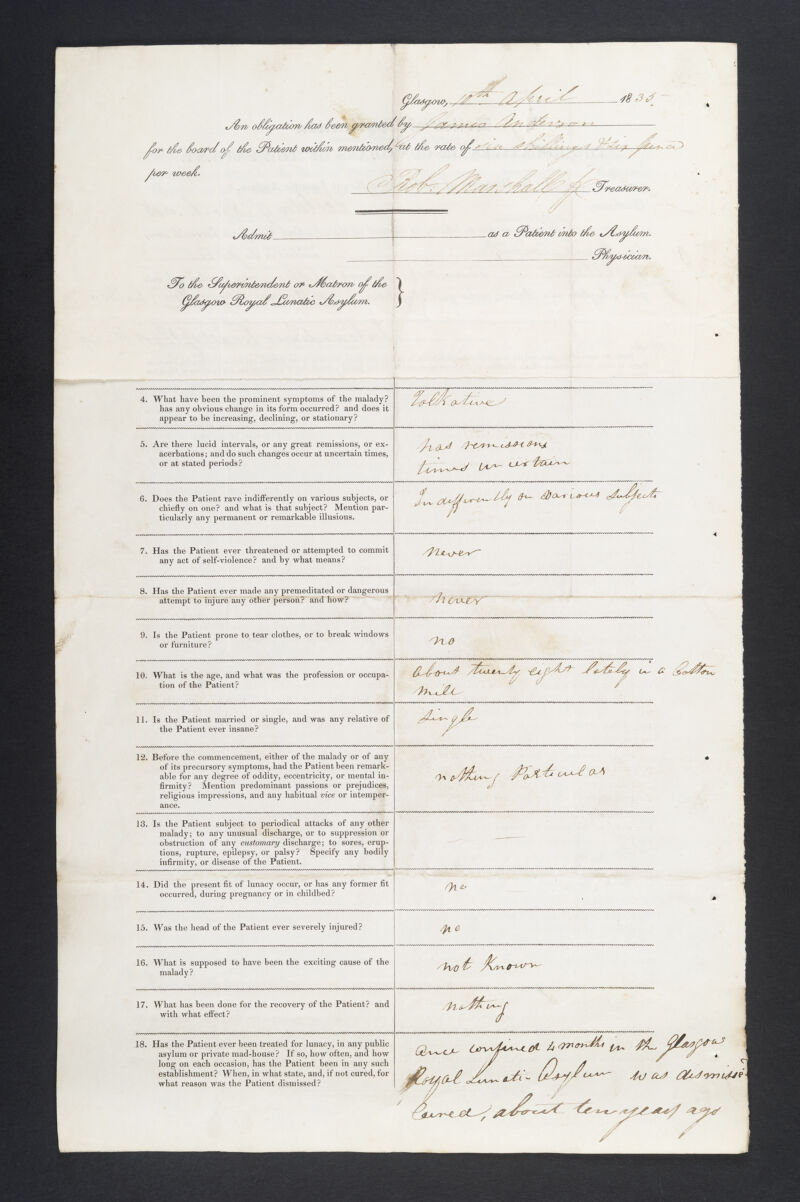 Glasgow, 10th April 1835
An obligation has been granted by James Anderson
for the board of the Patient within mentioned, at the rate of six shillings & six pence
per week.
Rob. Marshall Treasurer.
Admit as a Patient into the Asylum.
Physician.
To the Superintendent or Matron of the
Glasgow Royal Lunatic Asylum. }
4. What have been the prominent symptoms of the malady?
has any obvious change in its form occurred? and does it
appear to be increasing, declining, or stationary?
Talkative
5. Are there lucid intervals, or any great remissions, or ex-
acerbations; and do such changes occur at uncertain times,
or at stated periods?
has remissions
times uncertain
6. Does the Patient rave indifferently on various subjects, or
chiefly on one? and what is that subject? Mention par-
ticularly any permanent or remarkable illusions.
Indifferently on various subjects
7. Has the Patient ever threatened or attempted to commit
any act of self-violence? and by what means?
Never
8. Has the Patient ever made any premeditated or dangerous
attempt to injure any other person? and how?
Never
9. Is the Patient prone to tear clothes, or to break windows
or furniture?
no
10. What is the age, and what was the profession or occupa-
tion of the Patient?
About twenty eight lately in a Cotton
Mill
11. Is the Patient married or single, and was any relative of
the Patient ever insane?
Single
12. Before the commencement, either of the malady or of any
of its precursory symptoms, had the Patient been remark-
able for any degree of oddity, eccentricity, or mental in-
firmity? Mention predominant passions or prejudices,
religious impressions, and any habitual vice or intemper-
ance.
nothing Particular
13. Is the Patient subject to periodical attacks of any other
malady; to any unusual discharge, or to suppression or
obstruction of any customary discharge; to sores, erup-
tions, rupture, epilepsy, or palsy? Specify any bodily
infirmity, or disease of the Patient.
14. Did the present fit of lunacy occur, or has any former fit
occurred, during pregnancy or in childbed?
no
15. Was the head of the Patient ever severely injured?
no
16. What is supposed to have been the exciting cause of the
malady?
not Known
17. What has been done for the recovery of the Patient? and
with what effect?
Nothing
18. Has the Patient ever been treated for lunacy, in any public
asylum or private mad-house? If so, how often, and how
long on each occasion, has the Patient been in any such
establishment? When, in what state, and, if not cured, for
what reason was the Patient dismissed?
Once confined 4 months in the Glasgow
Royal Lunatic Asylum was dismissed
Cured, about ten years ago